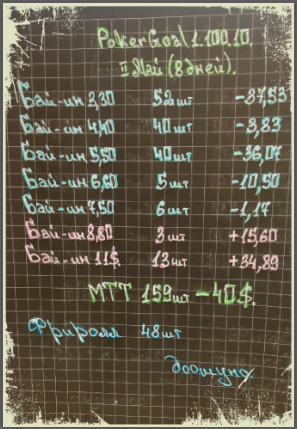 PokerGoal 1.100.10.
II Май (8 дней).
Бай-ин 3,30 52 шт -37,53
Бай-ин 4,40 40 шт -3,83
Бай-ин 5,50 40 шт -36,07
Бай-ин 6,60 5 шт -10,50
Бай-ин 7,50 6 шт -1,17
Бай-ин 8,80 3 шт +15,60
Бай-ин 11$ 13 шт +34,89
МТТ 159 шт -40$.
Фриролл 48 шт